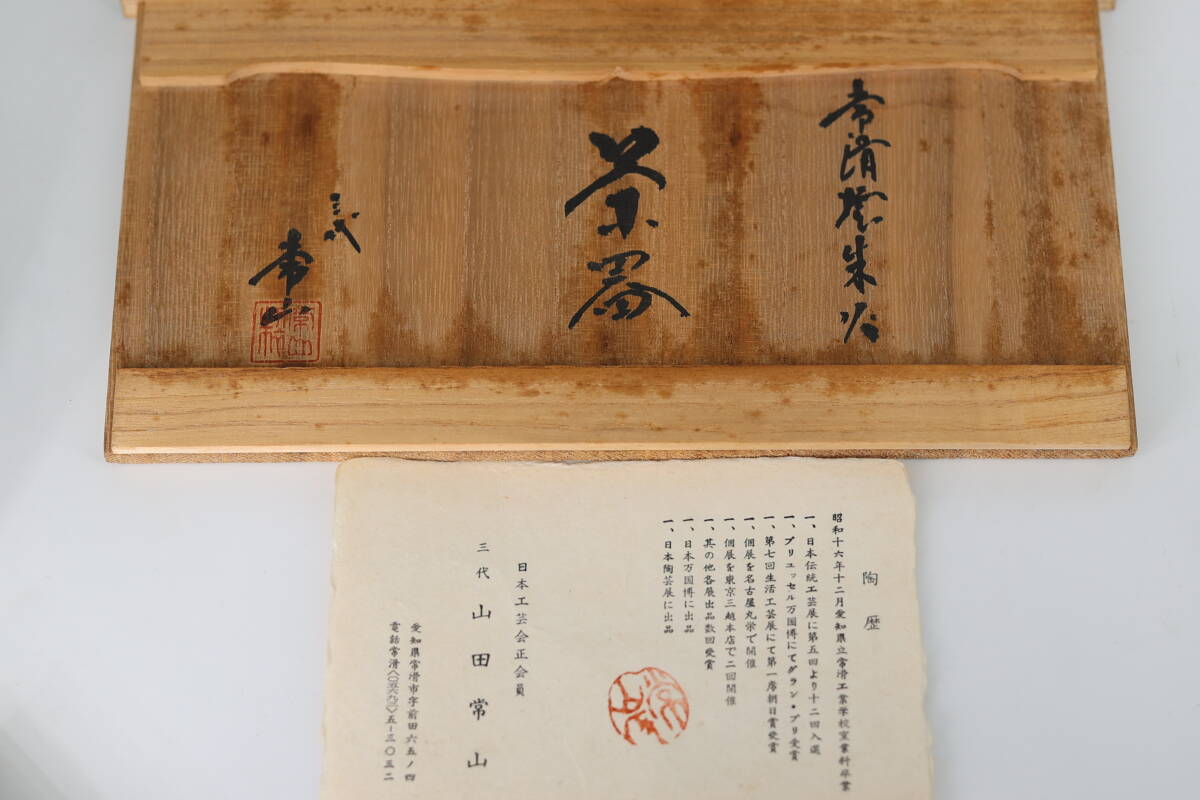 常滑窯朱泥
茶器
三代
常山
陶歴
昭和十六年十二月愛知県立常滑工業学校窯業科卒業
一、日本伝統工芸展に第五回より十二回入選
一、ブリュッセル万国博にてグラン・プリ受賞
一、第七回生活工芸展にて第一席朝日賞受賞
一、個展を名古屋丸栄で開催
一、個展を東京三越本店で二回開催
一、其の他各展出品数回受賞
一、日本万国博に出品
一、日本陶芸展に出品
日本工芸会正会員
三代 山田常山
愛知県常滑市字前田六五ノ四
電話常滑〈〇五六九三〉五―三〇五二